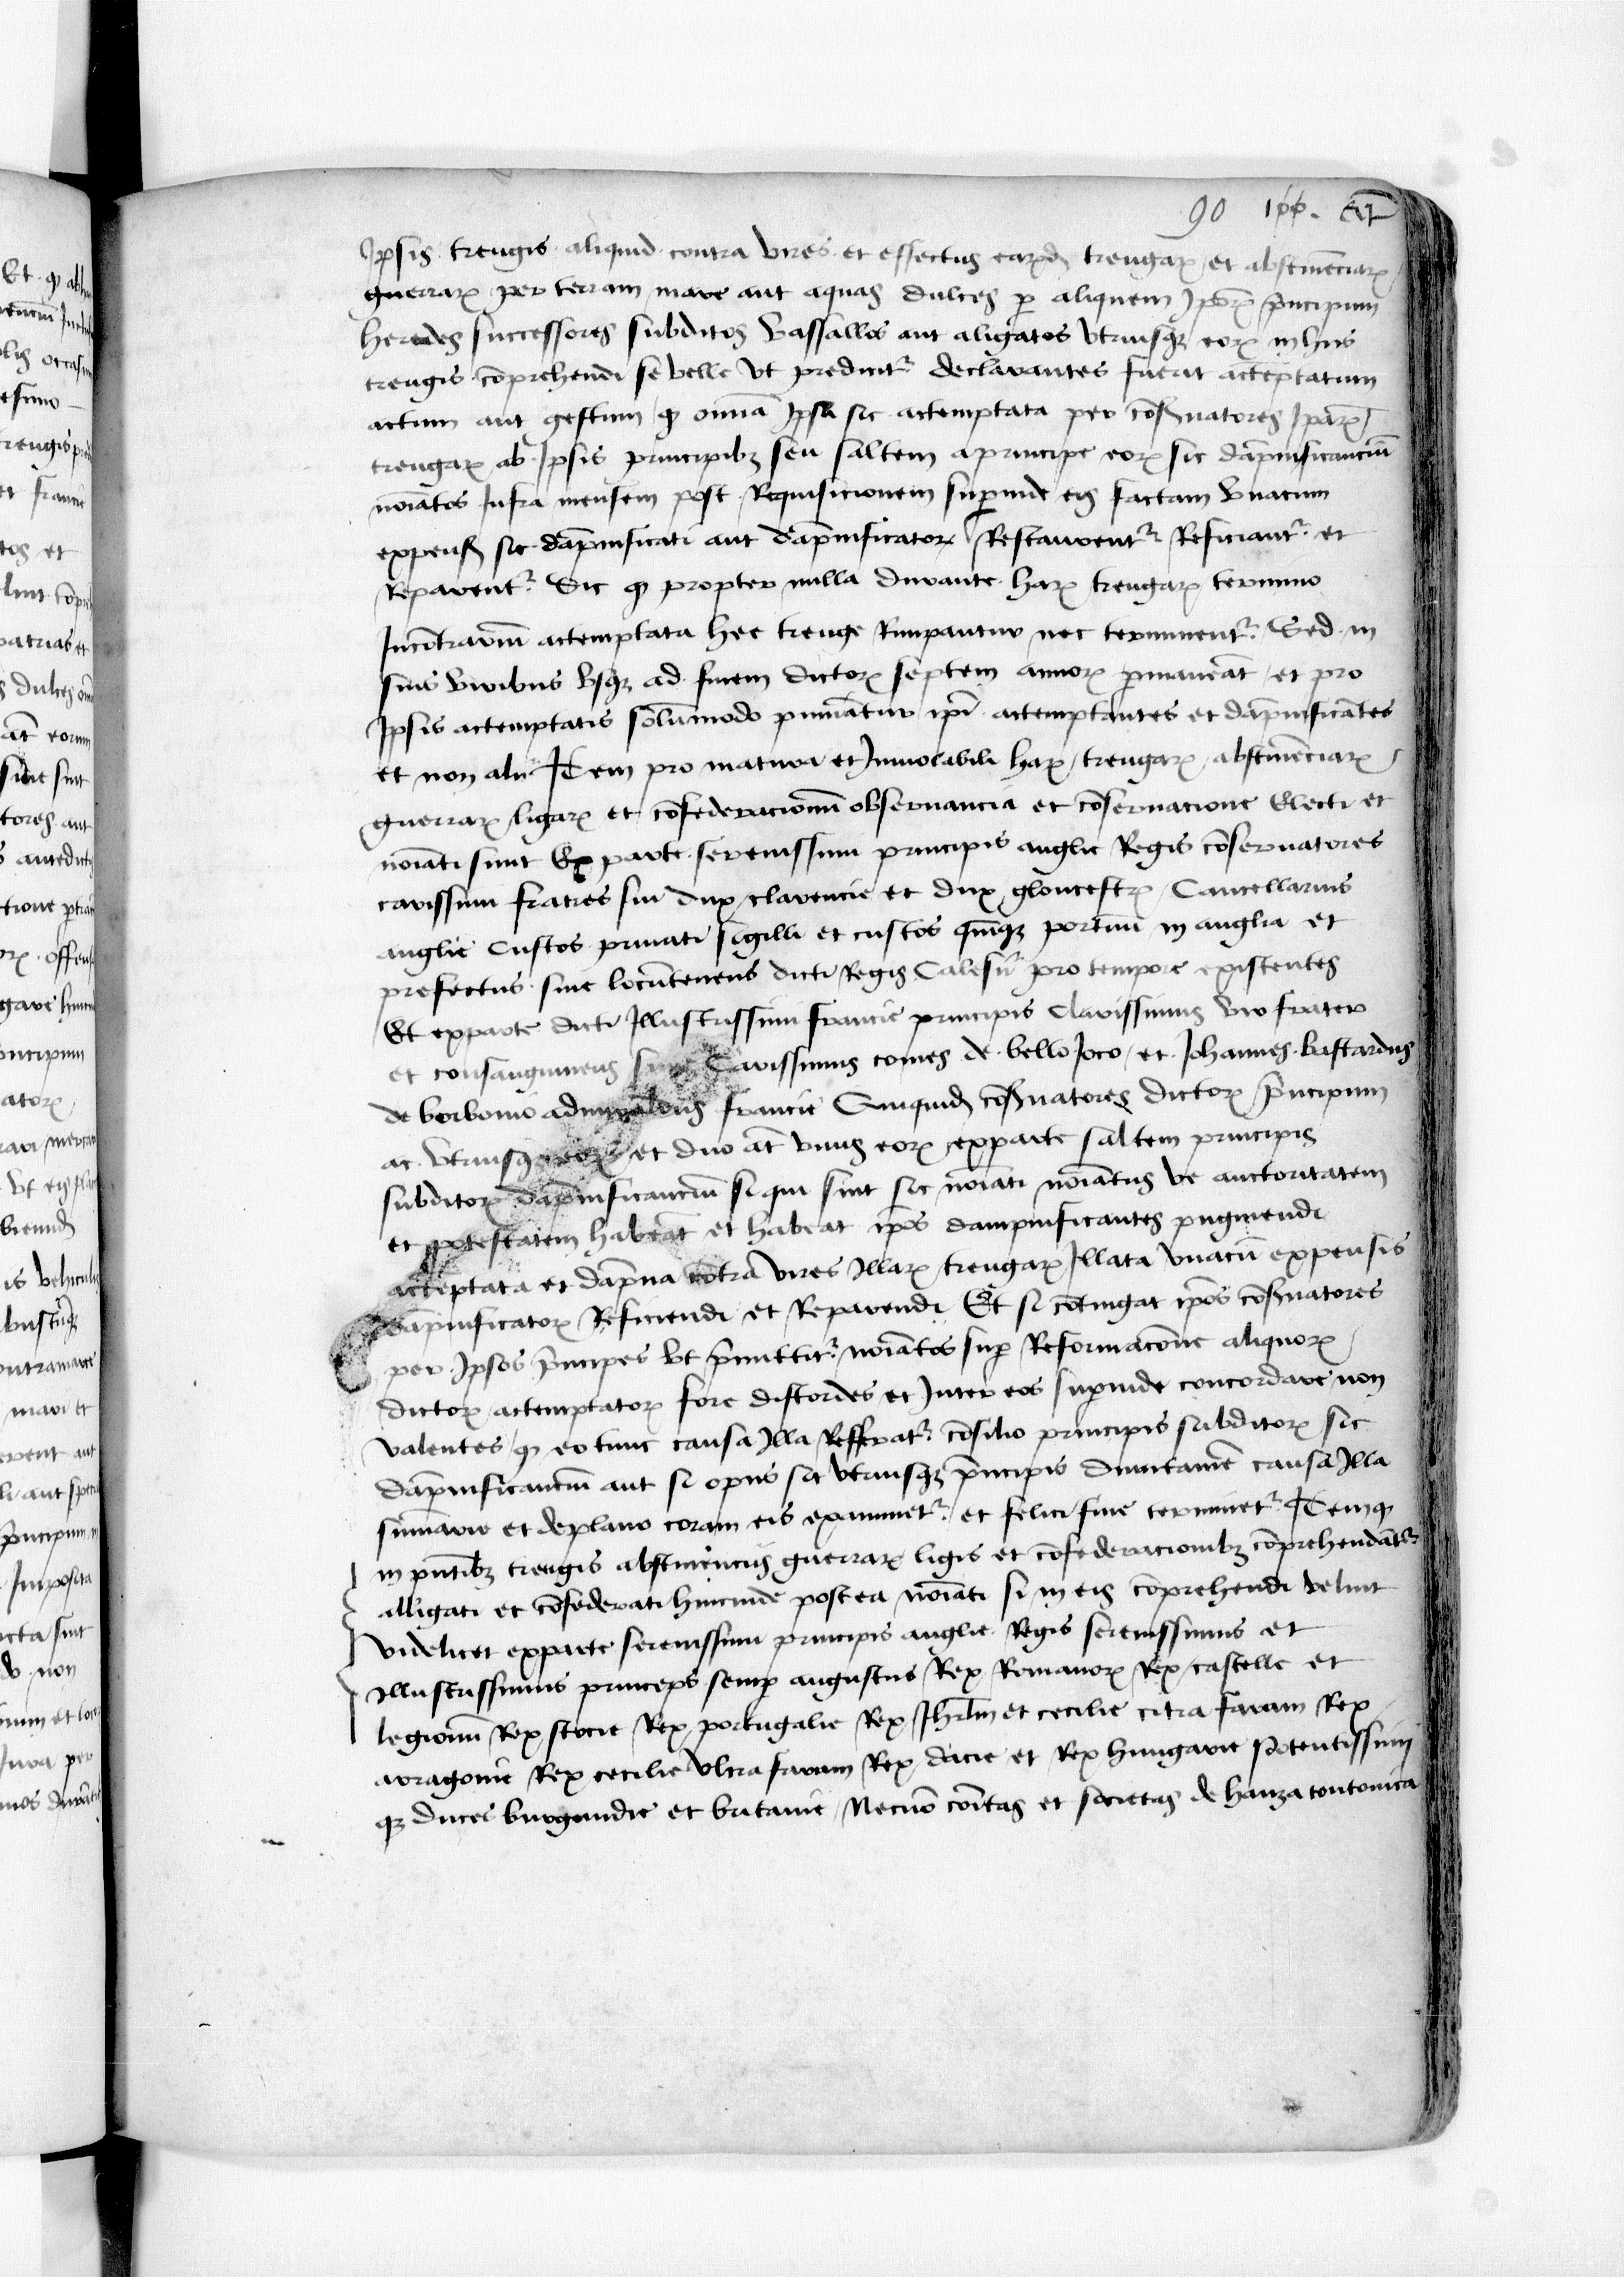 90
Ipsis treugis aliquid contra vires et effectus earūdē treugaꝝ et abstinēciaꝝ
guerraꝝ per terram mare aut aquas dulces ꝑ aliquem ip̄oꝝ p̄ncipum
heredes successores subditos vassallos aut aligatos vtriusqꝫ eoꝝ in hiis
treugis cōprehendi se velle vt predicitꝛ declarantes fuerit attēptatum
actum aut gestum ꝙ om̄ia Ipsa sic attemptata per cōẜuatores Ip̄aꝝ
treugaꝝ ab Ipsis principibꝫ seu saltem a principe eoꝝ sic dāpnificanciū
noīatos Infra mensem post Requisicionem suꝑinde eis factam vnacum
expenẜ sic dāpnificati aut dāpnificatoꝝ Restaurentꝛ Reficiantꝛ et
Reparentꝛ Sic ꝙ propter nulla durante haꝝ treugaꝝ termino
Incōtrariū attemptata hee treuge Rumpantur nec terminentꝛ Sed in
suis viribus vsqꝫ ad finem dictoꝝ septem annoꝝ ꝑmaneāt et pro
Ipsis attemptatis solūmodo puniātur ip̄i attemptantes et dāpnificātes
et non alii Item pro matura et Inuiolabili haꝝ treugaꝝ abstinēciaꝝ
guerraꝝ ligaꝝ et cōfederacionū obseruancia et cōseruacione Electi et
noīati sunt Ex parte serenissimi principis anglie Regis cōseruatores
carissimi fratres sui dux clarencie et dux gloucestꝝ Cancellarius
anglie Custos priuati sigilli et custos quīqꝫ portuū in anglia et
prefectus siue locūtenens dicti Regis Calesii pro tempore existentes
Et exparte dicti Illustrissimi francie principis Clarissimus vir frater
et consanguineus suus Carissimus comes de bello Joco et Johannes bastardus
de borbonio admirallus francie Quiquidē cōẜuatores dictoꝝ p̄ncipum
ac vtriusqꝫ eoꝝ et duo āt vnus eoꝝ exparte saltem principis
subditoꝝ dāpnificanciū si qui sint sic noīati noīatus ve auctoritatem
et potestatem habeāt et habeat ip̄os dampnificantes pugniendi
attēptata et dāpna cōtra vires Illaꝝ treugaꝝ Illata vnacū expensis
dāpnificatoꝝ Reficiendi et Reparendi Et si cōtingat ip̄os cōẜuatores
per Ipsos p̄ncipes vt p̄mittitꝛ noīatos suꝑ Reformacōne aliquoꝝ
dictoꝝ attemptatoꝝ fore discordes et Inter eos suꝑinde concordare non
valentes ꝙ eo tunc causa Illa Refferatꝛ cōsilio principis subditoꝝ sic
dāpnificanciū aut si opus sit vtriusqꝫ p̄ncipis diuitamē causa Illa
sūmarie et deplano coram eis examinetꝛ et felici fine terminetꝛ Item ꝙ
in pn̄tibꝫ treugis abstinenciis guerraꝝ ligis et cōfederacionibꝫ cōprehendātꝛ
alligati et cōfederati hincinde postea noīati si in eis cōprehendi velint
videlicet exparte serenissimi principis anglie Regis serenissimus et
Illustrissimus princeps semꝑ augustus Rex Romanoꝝ Rex castelle et
legionū Rex scocie Rex portugalie Rex Jhrl̄m et cecilie citra farum Rex
arragonie Rex cecilie vltra farum Rex dacie et Rex hungarie Potentissimi
qꝫ duces burgundie et britanie Necnō cōitas et societas de hanza toutonica